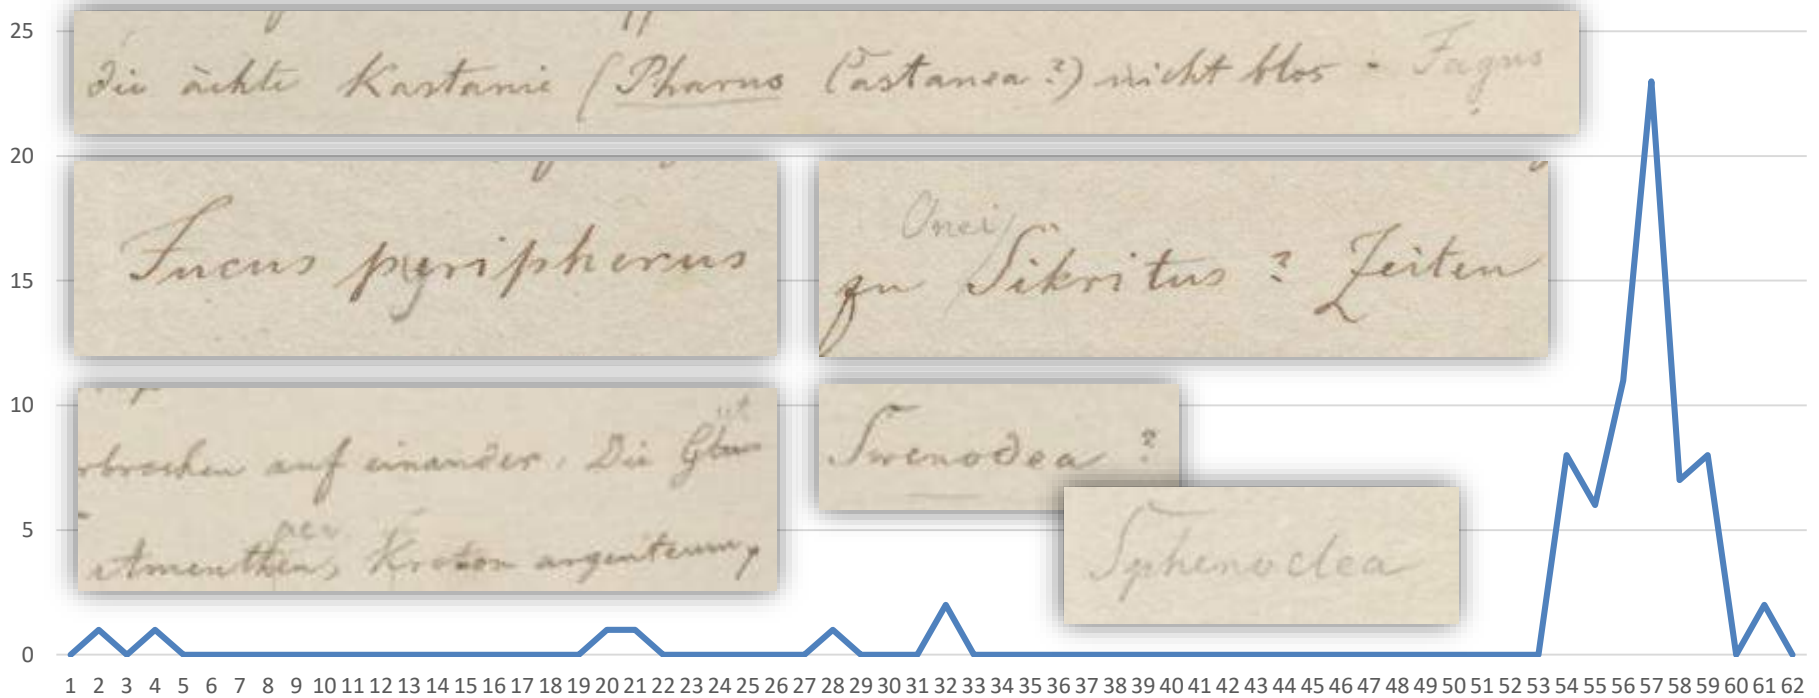 25
die ächte Kastanie (Pharus Castanea?) nicht blos - Fagus
20
Fucus pyripherus
Onei
zu Sikritus ? Zeiten
15
10
rbrochen auf einander. Die
Swenodea ?
5
Amenthens Kroton argenteum,
Sphenoclea
0
1 2 3 4 5 6 7 8 9 10 11 12 13 14 15 16 17 18 19 20 21 22 23 24 25 26 27 28 29 30 31 32 33 34 35 36 37 38 39 40 41 42 43 44 45 46 47 48 49 50 51 52 53 54 55 56 57 58 59 60 61 62